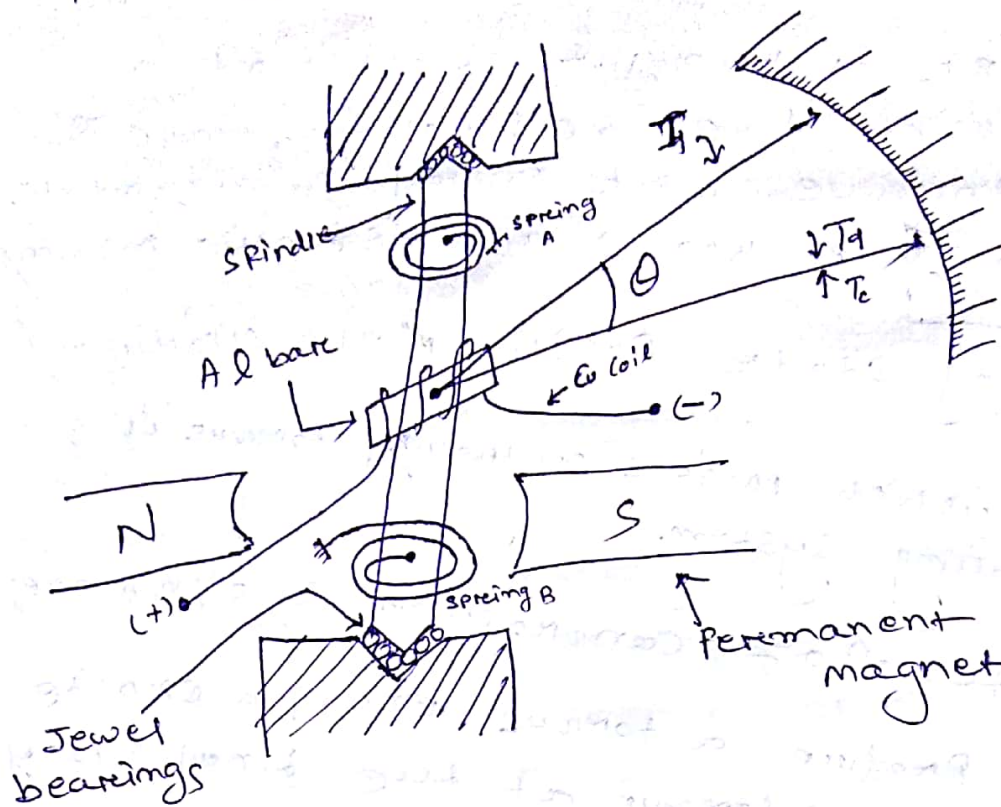 Spindle
spreing
A
θ
↓Td
↑Tc
Al bare
Cu coil
(-)
N
S
(+)
spreing B
Peremanent
magnet
Jewel
beareings